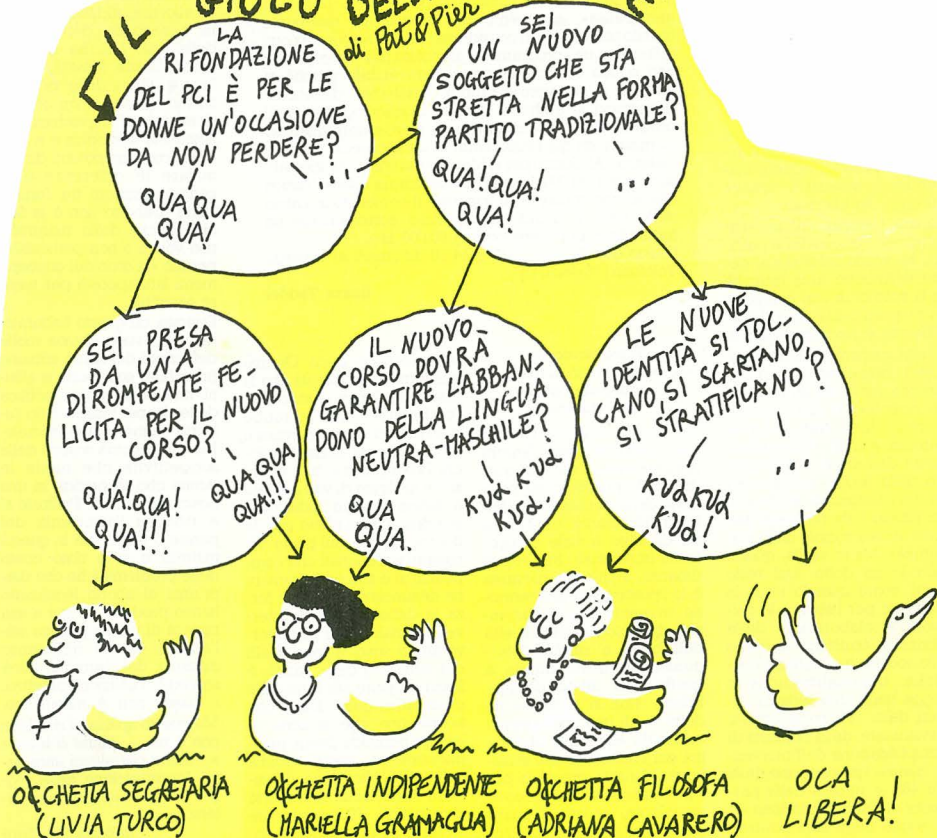 IL GIOCO
di Pat & Pier
LA
RIFONDAZIONE
DEL PCI È PER LE
DONNE UN'OCCASIONE
DA NON PERDERE?
QUA QUA
QUA!
...
SEI
UN NUOVO
SOGGETTO CHE STA
STRETTA NELLA FORMA
PARTITO TRADIZIONALE?
QUA! QUA!
QUA!
...
SEI PRESA
DA UNA
DIROMPENTE FE-
LICITÀ PER IL NUOVO
CORSO?
QUA! QUA!
QUA!!!
QUA QUA
QUA!!!
IL NUOVO
CORSO DOVRÀ
GARANTIRE L'ABBAN-
DONO DELLA LINGUA
NEUTRA-MASCHILE?
QUA
QUA.
KUA KUA
KUA.
LE NUOVE
IDENTITÀ SI TOC-
CANO, SI SCARTANO,
SI STRATIFICANO?
KUA KUA
KUA!
...
OCCHETTA SEGRETARIA
(LIVIA TURCO)
OCCHETTA INDIPENDENTE
(MARIELLA GRAMAGLIA)
OCCHETTA FILOSOFA
(ADRIANA CAVARERO)
OCA
LIBERA!